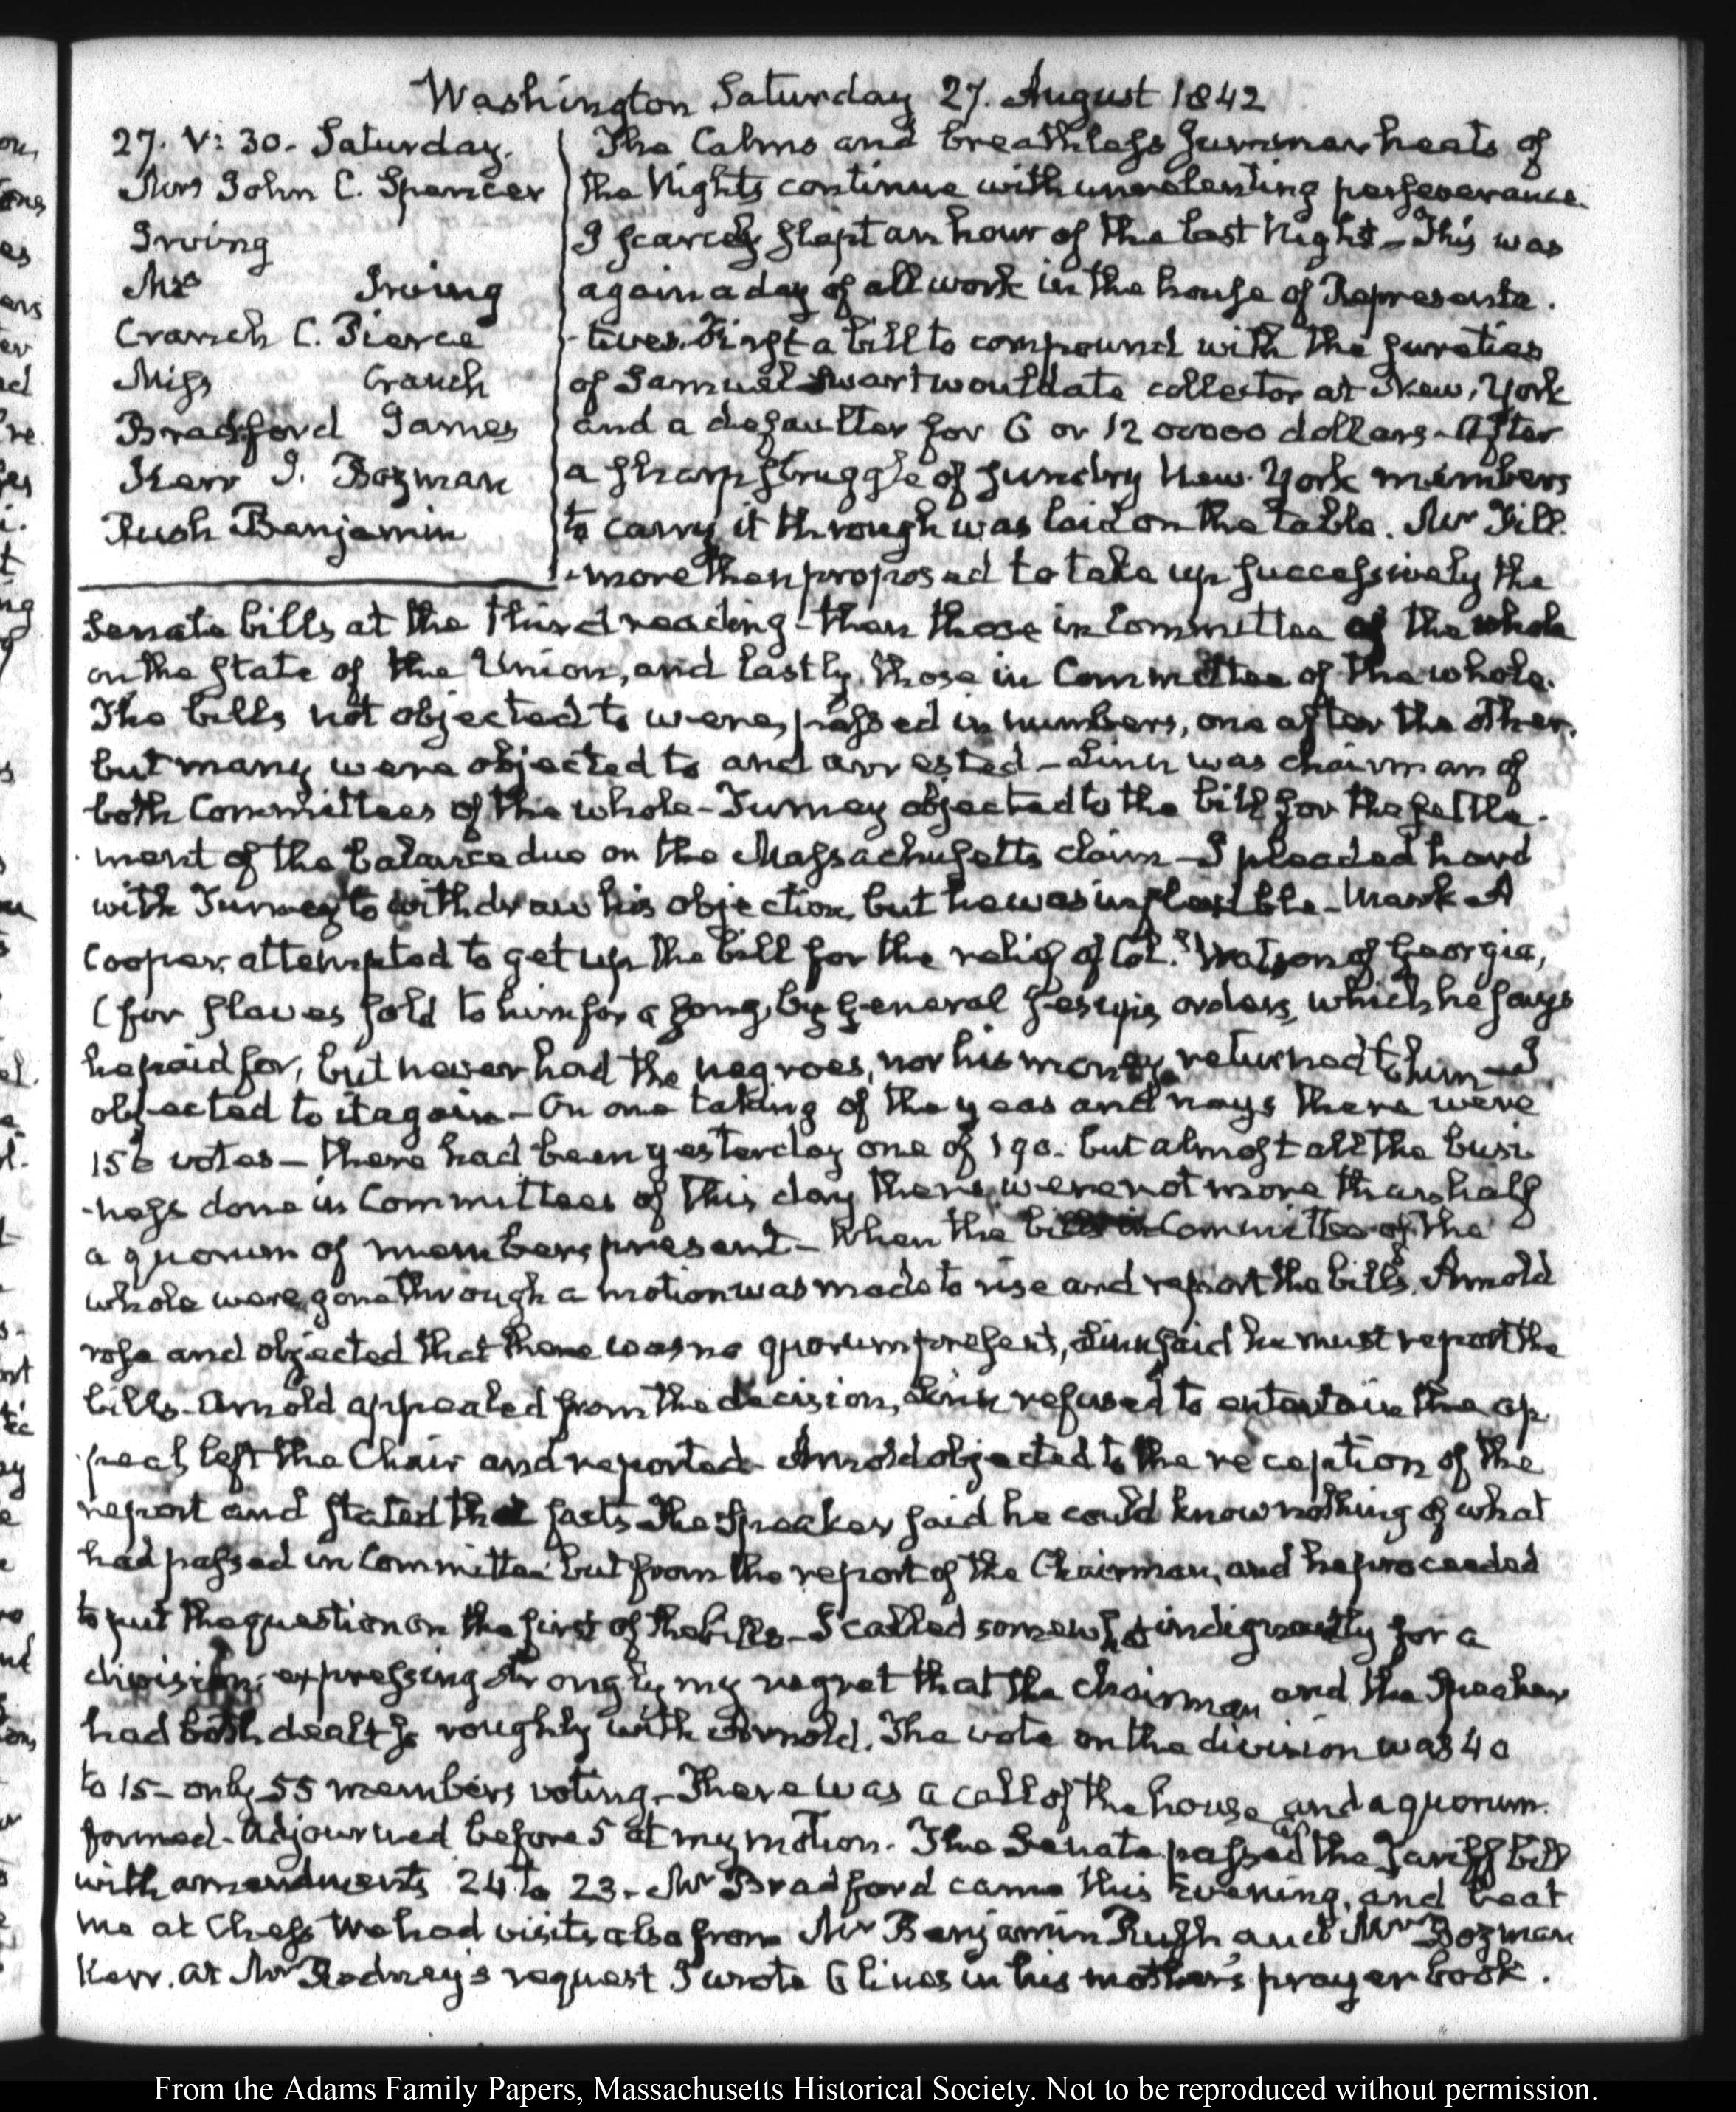 Washington Saturday 27. August 1842
27. V: 30. Saturday.
Mrs John C. Spencer
Irving
Mrs Irving
Cranch C. Pierce
Miss Cranch
Bradford James
Kerr J. Bozman
Rush Benjamin
The Calms and breathless summer heats of
the Nights continue with unrelenting perseverance.
I scarcely slept an hour of the last Night - This was
again a day of all work in the house of Representa.
-tives. First a bill to compound with the sureties
of Samuel Swartwout late collector at New, York
and a defaulter for 6 or 12 00000 dollars - After
a sharp struggle of sundry New-York members
to carry it through was laid on the table. Mr Fill.
-more then proposed to take up successively the
Senate bills at the third reading - then those in Committee of the whole
on the state of the Union, and lastly, those in Committee of the whole.
The bills not objected to were passed in numbers, one after the other.
but many were objected to and arrested - Linn was chairman of
both Committees of the whole - Turney objected to the bill for the settle.
ment of the balance due on the Massachusetts claim - I pleaded hard
with Turney to withdraw his objection, but he was inflexible - Mark A
Cooper, attempted to get up the bill for the relief of Watson of Georgia,
(for slaves sold to him for a song, by General Jesup's orders, which he says
he paid for, but never had the negroes, nor his money returned to him - I
objected to it again - On one taking of the yeas and nays there were
156 votes - there had been yesterday one of 190. but almost all the busi
-ness done in Committees of this day there were not more than half
a quorum of members present - When the bills in Committee of the
whole were gone through a motion was made to rise and report the bills. Arnold
rose and objected that there was no quorum present, Linn said he must report the
bills - Arnold appealed from the decision, Linn refused to entertain the ap
-peal, left the Chair and reported - Arnold objected to the reception of the
report and stated the facts - The Speaker said he could know nothing of what
had passed in Committee but from the report of the Chairman, and he proceeded
to put the question on the first of the bills - I called somewhat indignantly for a
division; expressing strongly my regret that the chairman and the Speaker
had both dealt so roughly with Arnold. The vote on the division was 40
to 15 - only 55 members voting - There was a call of the house and a quorum
formed - Adjourned before 5 at my motion. The Senate passed the Tariff bill
with amendments 24 to 23 - Mr Bradford came this Evening, and beat
me at Chess We had visits also from Mr Benjamin Rush and Mr Bozman
Kerr. At Mr Rodney's request I wrote 6 lines in his mother's prayer book.
From the Adams Family Papers, Massachusetts Historical Society. Not to be reproduced without permission.